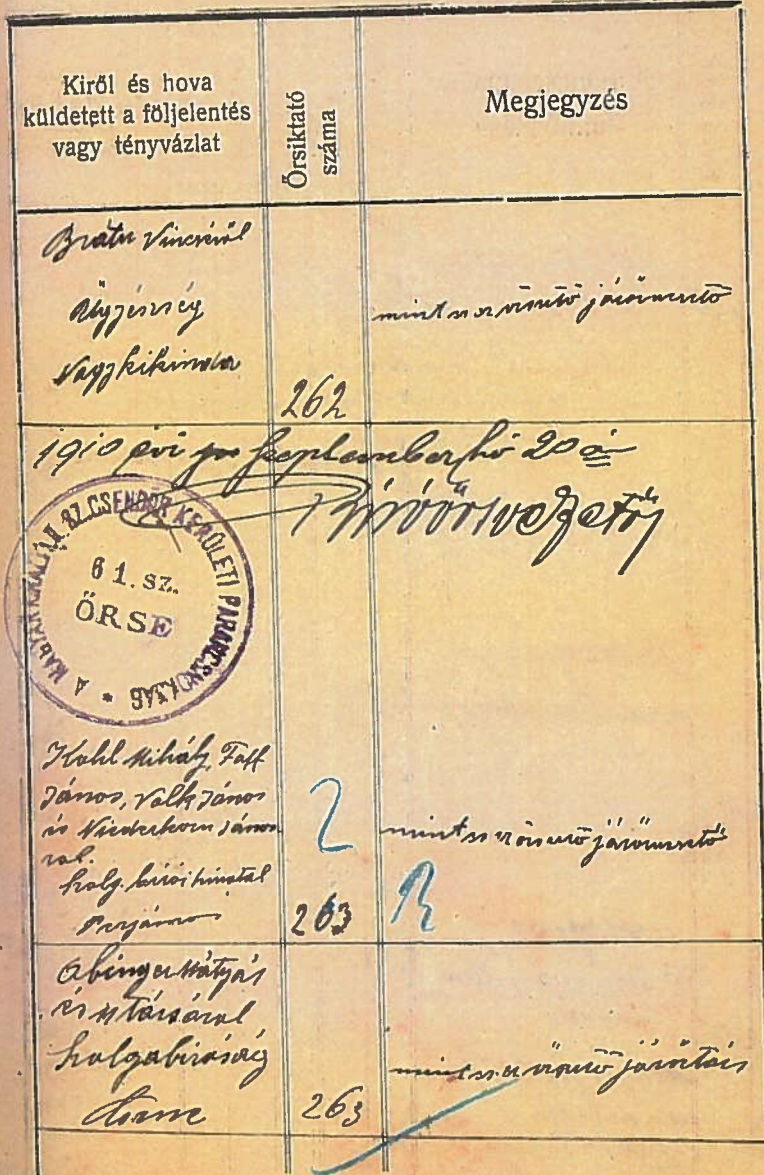 Kiről és hova
küldetett a följelentés
vagy tényvázlat
Őrsiktató
száma
Megjegyzés
Bratu Vincéről
Ügyészség
Nagykikinda
262
mint szervezető járőrvezető
1910 évi szeptember hó 20 án
őrsvezető
A MAGYAR KIRÁLYI SZ. CSENDŐR KERÜLETI PARANCSNOKSÁG
61. sz.
ŐRSE
Kohl Mihály, Faff
János, Volk János
és Niederkorn János
ról.
szolg. bírói hivatal
Perjámos
263
2
mint járőrvezető
Abinger Mátyás
és társáról
szolgabíróság
263
mint járőrtárs